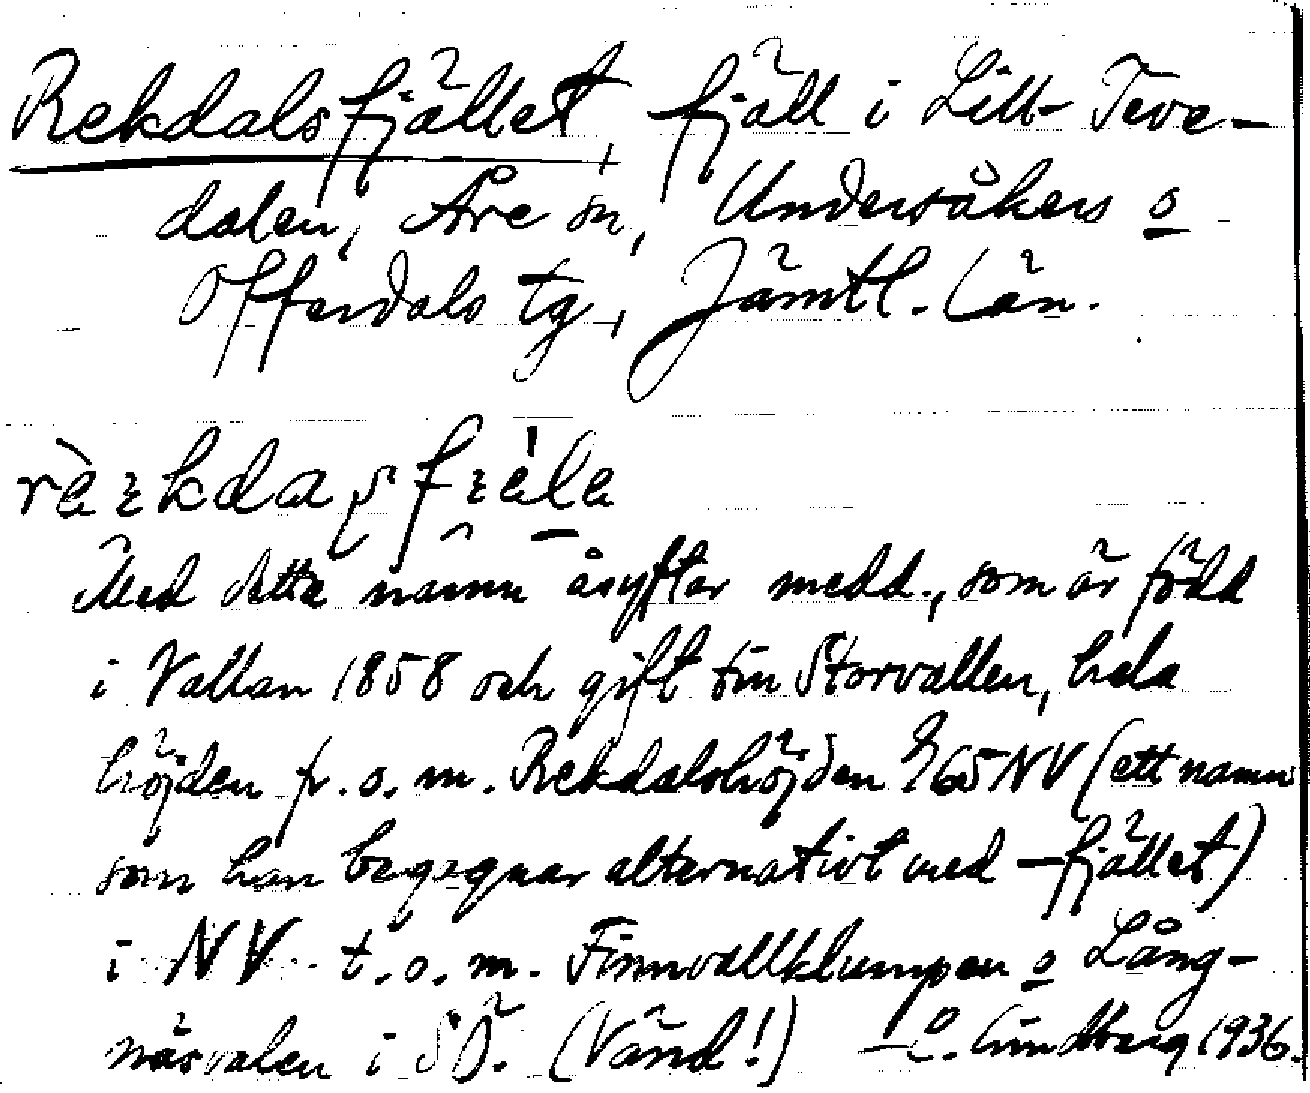 Rekdalsfjället, fjäll i Lill-Teve-
dalen, Åre sn, Undersåkers o
Offerdals tg, Jämtl. län.
Med detta namn åsyftar medd., som är född
i Vallan 1858 och gift från Storvallen, hela
höjden fr. o. m. Rekdalshöjden 965 NV (ett namn
som han begagnar alternativt med -fjället)
i NV t. o. m. Finnvallklumpen o Lång-
näsvalen i SÖ. (Vänd!) Lundberg 1936.